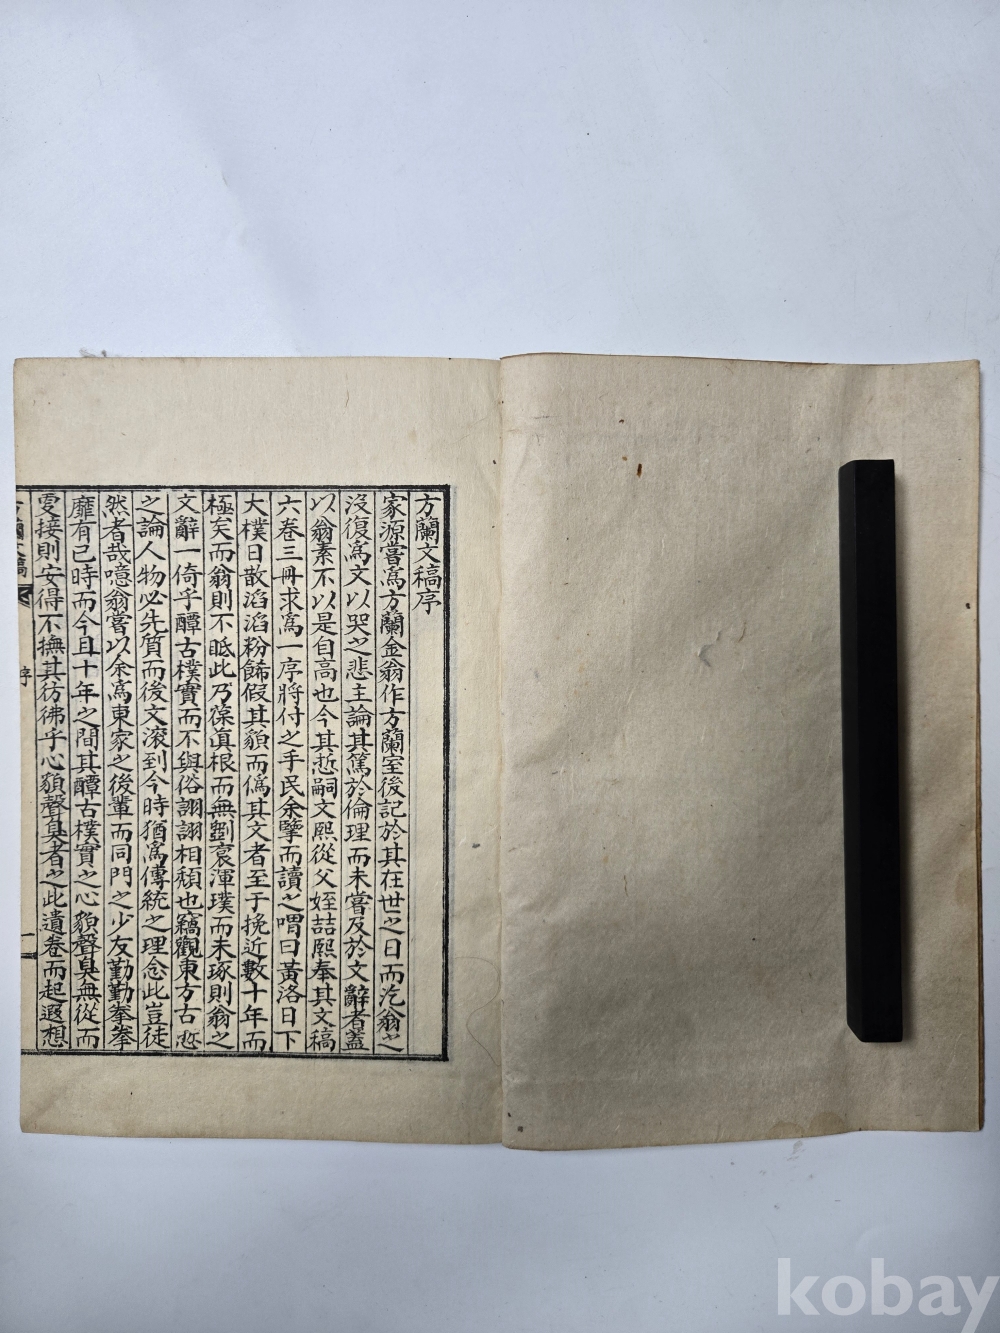 方蘭文稿序
家源嘗爲方蘭金翁作方蘭室後記於其在世之日而汔翁之
沒復爲文以哭之悲主論其篤於倫理而未嘗及於文辭者蓋
以翁素不以是自高也今其悊嗣文熙從父姪喆熙奉其文稿
六卷三冊求爲一序將付之手民余擎而讀之喟曰黃洛日下
大樸日散滔滔粉餙假其貌而僞其文者至于挽近數十年而
極矣而翁則不眡此乃葆眞根而無劉裒渾璞而未琢則翁之
文辭一倚乎醰古樸實而不與俗詡詡相頮也竊觀東方古悊
之論人物必先質而後文滚到今時猶爲傳統之理念此豈徒
然者哉噫翁嘗以余爲東家之後輩而同門之少友勤勤拳拳
靡有已時而今且十年之間其醰古樸實之心貌聲臭無從而
更接則安得不撫其彷彿乎心貌聲臭者之此遺卷而起遐想
方蘭文稿
序
一
kobay